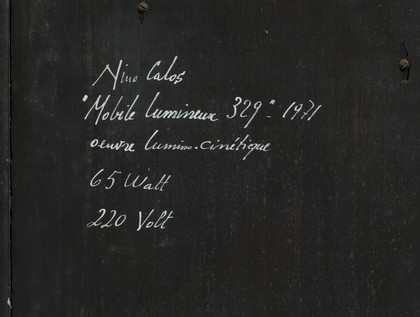 Nino Calos
"Mobile lumineux 329" - 1971
oeuvre lumino-cinétique
65 Watt
220 Volt